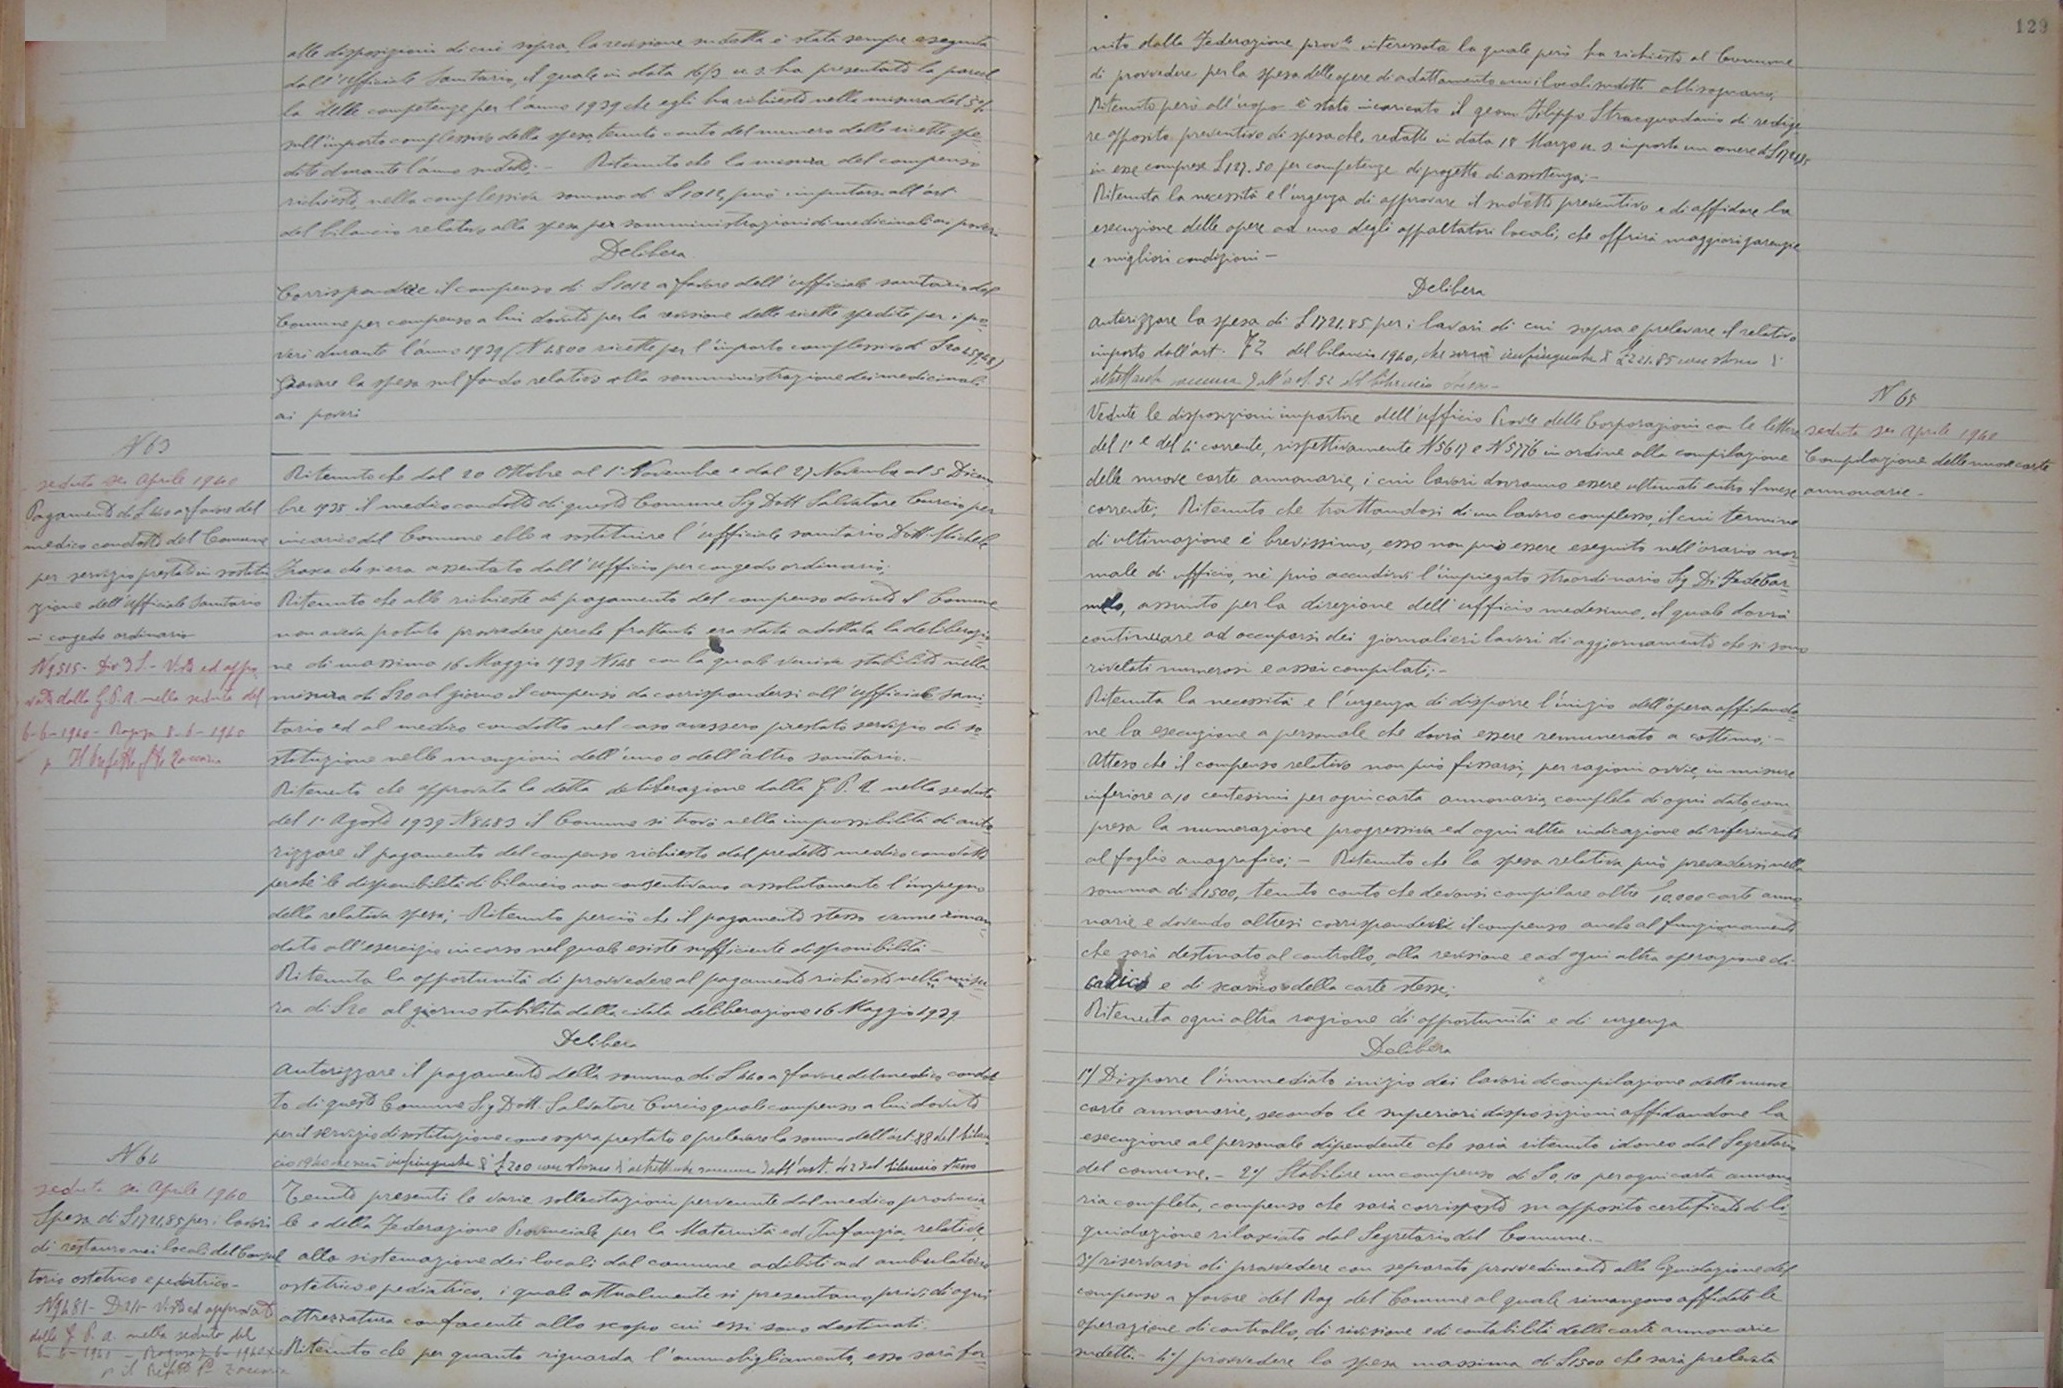 alle disposizioni di cui sopra la revisione suddetta è stata sempre eseguita
dall'ufficiale sanitario, il quale in data 16/3 u.s. ha presentato la parcel
la delle competenze per l'anno 1939 che egli ha richiesto nella misura del 5%
sull'importo complessivo della spesa tenuto conto del numero delle ricette spe
dite durante l'anno suddetto;- Ritenuto che la misura del compenso
richiesto, nella complessiva somma di L 1012, può imputarsi all'art
del bilancio relativo alla spesa per somministrazioni di medicinali ai poveri
Delibera
Corrispondere il compenso di L 1012 a favore dell'ufficiale sanitario del
Comune per compenso a lui dovuto per la revisione delle ricette spedite per i po
veri durante l'anno 1939 (N 4800 ricette per l'importo complessivo di
Gravare la spesa sul fondo relativo alla somministrazione dei medicinali
ai poveri
N 63
seduta Aprile 1940
Pagamento di L 440 a favore del
medico condotto del Comune
per servizio prestato in sostitu
zione dell'ufficiale Sanitario
in congedo ordinario
N 9515 - Div 3 S. - Visto ed appro
vato dalla G.P.A. nella seduta del
6-6-1940 - Ragusa 8-6-1940
p Il Prefetto f.to Zaccaria
Ritenuto che dal 20 Ottobre al 1° Novembre e dal 27 Novembre al 5 Dicem
bre 1938 il medico condotto di questo Comune Sig Dott Salvatore Curcio per
incarico del Comune ebbe a sostituire l'ufficiale sanitario Dott. Michele
che si era assentato dall'ufficio per congedo ordinario;
Ritenuto che alle richieste di pagamento del compenso dovuto il Comune
non aveva potuto provvedere perché frattanto era stata adottata la deliberazio
ne di massima 16 Maggio 1939 N 148 con la quale veniva stabilito nella
misura di L 20 al giorno il compenso da corrispondersi all'ufficiale sani
tario ed al medico condotto nel caso avessero prestato servizio di so
stituzione nelle mansioni dell'uno o dell'altro sanitario.-
Ritenuto che approvata la detta deliberazione dalla G.P.A nella seduta
del 1° Agosto 1939 N 8483 il Comune si trovò nella impossibilità di auto
rizzare il pagamento del compenso richiesto dal predetto medico condotto
perché le disponibilità di bilancio non consentivano assolutamente l'impegno
della relativa spesa; Ritenuto perciò che il pagamento stesso venne riman
dato all'esercizio in corso nel quale esiste sufficiente disponibilità -
Ritenuta la opportunità di provvedere al pagamento richiesto nella misu
ra di L 20 al giorno stabilita dalla citata deliberazione 16 Maggio 1939
Delibera
Autorizzare il pagamento della somma di L 440 a favore del medico condot
to di questo Comune Sig Dott. Salvatore Curcio quale compenso a lui dovuto
per il servizio di sostituzione come sopra prestato e prelevare la somma dall'art. 88 del bilan
cio 1940 che verrà impinguato di £ 200 con storno d'altrettanta somma dall'art. 42 del bilancio stesso
N 64
seduta Aprile 1940
Spesa di L 1721,85 per i lavori
di restauro nei locali del Consul
torio ostetrico e pediatrico -
N 9481 - Visto ed approvato
dalla G.P.A. nella seduta del
6-6-1940 - Ragusa 6-1940
p il Prefetto Zaccaria
Tenuto presenti le varie sollecitazioni pervenute dal medico provincia
le e della Federazione Provinciale per la Maternità ed Infanzia relative
alla sistemazione dei locali dal comune adibiti ad ambulatorio
ostetrico e pediatrico, i quali attualmente si presentano privi di ogni
attrezzatura confacente allo scopo cui essi sono destinati.
Ritenuto che per quanto riguarda l'ammobigliamento, esso sarà for
129
nito dalla Federazione prov.le interessata la quale però ha richiesto al Comune
di provvedere per la spesa delle opere di adattamento cui i locali suddetti abbisognano;
Ritenuto però all'uopo è stato incaricato il geom Filippo Stracquadanio di redige
re apposito preventivo di spesa che, redatto in data 18 Marzo u s importa un onere di L 1721,85
in esse comprese L 127.50 per competenze di progetto di assistenza;-
Ritenuta la necessità e l'urgenza di approvare il suddetto preventivo e di affidare la
esecuzione delle opere ad uno degli appaltatori locali, che offrirà maggiori garanzie
e migliori condizioni -
Delibera
Autorizzare la spesa di £ 1721,85 per i lavori di cui sopra e prelevare il relativo
importo dall'art. 72 del bilancio 1940, che verrà impinguato di £ 221.85 con storno di
altrettanta somma dall'art. 52 del bilancio stesso -
N 65
seduta Aprile 1940
Compilazione delle nuove carte
annonarie -
Vedute le disposizioni impartite dell'ufficio Prov.le delle Corporazioni con le lettere
del 1° e del 4 corrente, rispettivamente N 5617 e N 5776 in ordine alla compilazione
delle nuove carte annonarie, i cui lavori dovranno essere ultimati entro il mese
corrente; Ritenuto che trattandosi di un lavoro complesso, il cui termine
di ultimazione è brevissimo, esso non può essere eseguito nell'orario nor
male di ufficio, nè può accudirvi l'impiegato straordinario Sig. Di Fede Car
melo, assunto per la direzione dell'ufficio medesimo, il quale dovrà
continuare ad occuparsi dei giornalieri lavori di aggiornamento che si sono
rivelati numerosi e assai compilati;-
Ritenuta la necessità e l'urgenza di disporre l'inizio dell'opera affidando
ne la esecuzione a personale che dovrà essere remunerato a cottimo;-
Atteso che il compenso relativo non può fissarsi, per ragioni ovvie, in misura
inferiore a 10 centesimi per ogni carta annonaria completa di ogni dato com
presa la numerazione progressiva ed ogni altra indicazione di riferimento
al foglio anagrafico;- Ritenuto che la spesa relativa può prevedersi nella
somma di £ 1500, tenuto conto che devonsi compilare oltre 10.000 carte anno
narie e dovendo altresì corrispondersi il compenso anche al funzionamento
che sarà destinato al controllo, alla revisione e ad ogni altra operazione di
carico e di scarico della carte stesse;
Ritenuta ogni altra ragione di opportunità e di urgenza
Delibera
1°/ Disporre l'immediato inizio dei lavori di compilazione delle nuove
carte annonarie, secondo le superiori disposizioni affidandone la
esecuzione al personale dipendente che sarà ritenuto idoneo dal Segretario
del comune.- 2°/ Stabilire un compenso di L 0,10 per ogni carta annona
ria completa, compenso che sarà corrisposto su apposito certificato di li
quidazione rilasciato dal Segretario del Comune.-
3°/ riservarsi di provvedere con separato provvedimento alla liquidazione del
compenso a favore del Rag del Comune al quale rimangono affidate le
operazione di controllo, di revisione e di contabilità delle carte annonarie
suddette.- 4°/ provvedere la spesa massima di £ 1500 che sarà prelevata